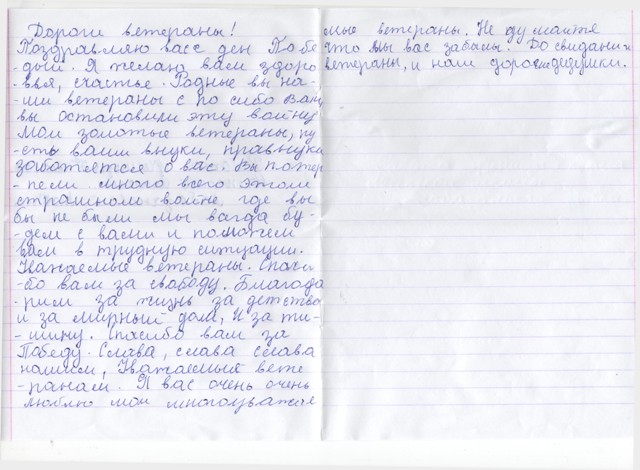 Дороги ветераны!
Поздравляю васс ден Побе
-дый. Я желаю вам здоро
-вья, счастье. Родные вы на-
-ши ветераны с по сибо Вам,
вы остановили эту войну
Мои золотые ветераны, пу
-сть ваши внуки, правнуки
заботяется о вас. Вы потер
-пели много всего этой
страшном войне, где вы
бы не были мы вагда бу-
-дем с вами и поможем
вам в трудную ситуации.
Уважаемые ветераны. Спаси
-бо вам за свободу. Благода
-рим за жизнь за детство
и за мирный дома, И за ти-
-шину. Спасибо вам за
Победу. Слава, слава слава
нашим, Уважаемый вете
-ранам. Я вас очень очень
люблю мои многоуважае
мые ветераны. Не думайте
что мы вас забаы. До свидании
ветераны, и наш дедушки.